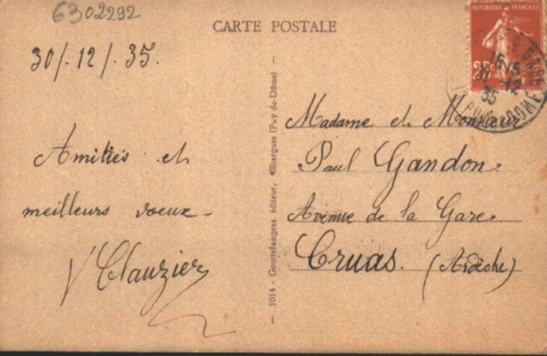 6302292
CARTE POSTALE
30/.12/.35.
Amitiés et
meilleurs voeux.
V Clauzier
1014 - Goutefangeas éditeur, Olliergues (Puy-de-Dôme)
REPUBLIQUE FRANÇAISE
GARE
35
PUY-DE-DOME
Madame et Monsieur
Paul Gandon.
Avenue de la Gare.
Cruas. (Ardèche)